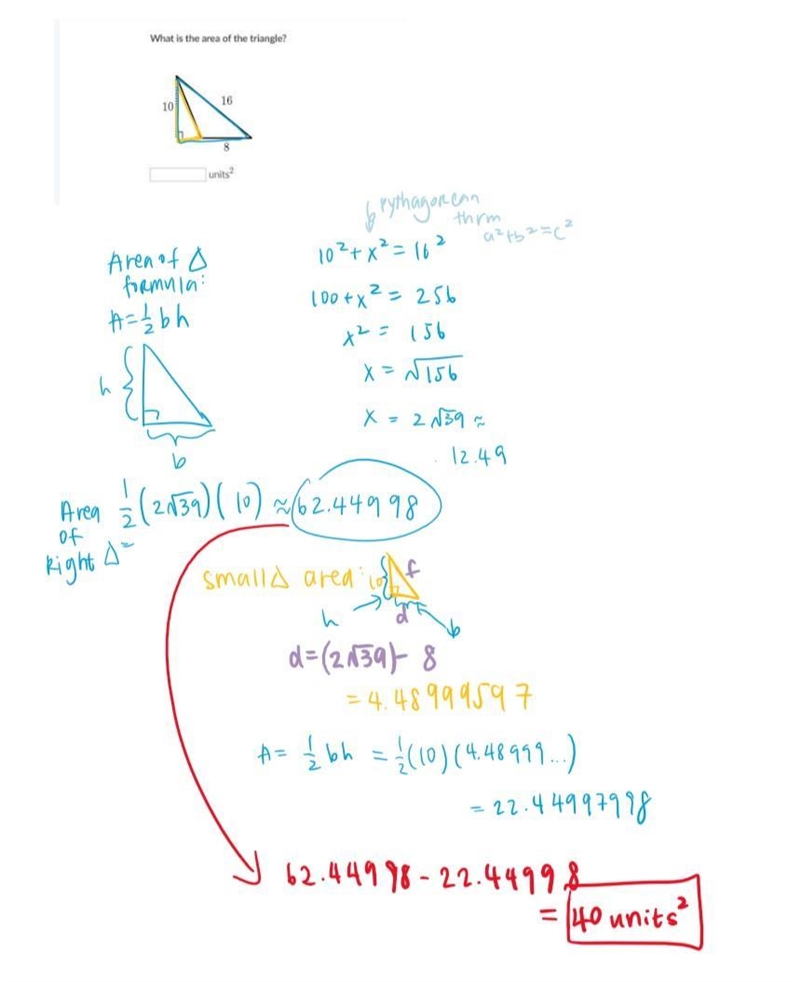 What is the area of the triangle?
10
16
8
units²
pythagorean
thrm
a²+b²=c²
Area of △
formula:
A=½bh
h
b
10²+x²=16²
100+x²=256
x²=156
x=√156
x=2√39≈
12.49
Area of Right △= ½(2√39)(10)≈62.44998
small△ area: 10 f
h d b
d=(2√39)-8
=4.48999597
A=½bh=½(10)(4.48999...)
=22.44997998
62.44998-22.44998
=40 units²